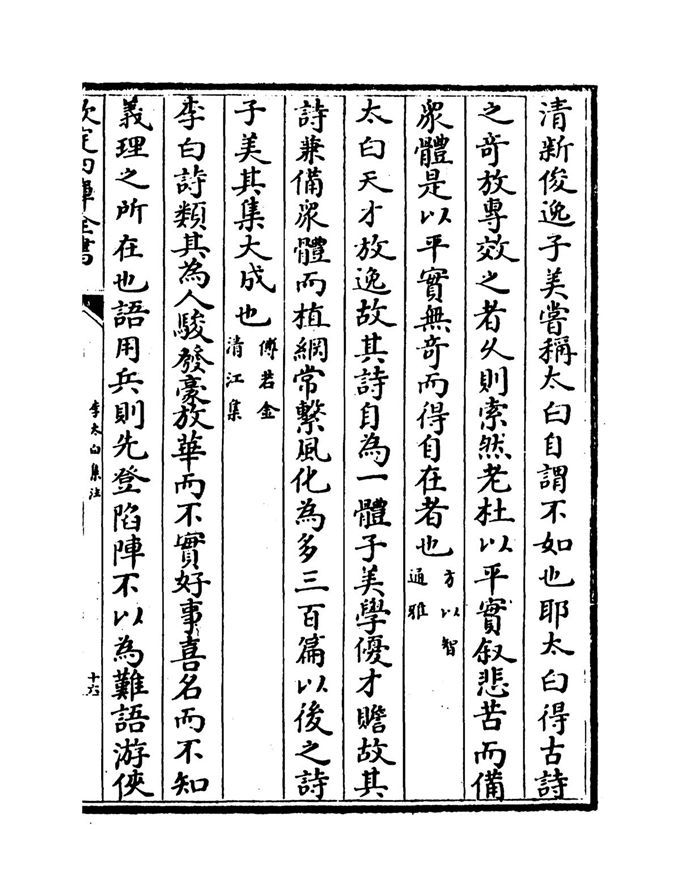 清新俊逸子美嘗稱太白自謂不如也耶太白得古詩
之奇放專效之者久則索然老杜以平實叙悲苦而備
眾體是以平實無奇而得自在者也方以智通雅
太白天才放逸故其詩自為一體子美學優才贍故其
詩兼備眾體而植綱常繫風化為多三百篇以後之詩
子美其集大成也傅若金清江集
李白詩類其為人駿發豪放華而不實好事喜名而不知
義理之所在也語用兵則先登陷陣不以為難語游俠
欽定四庫全書
李太白集注
十六